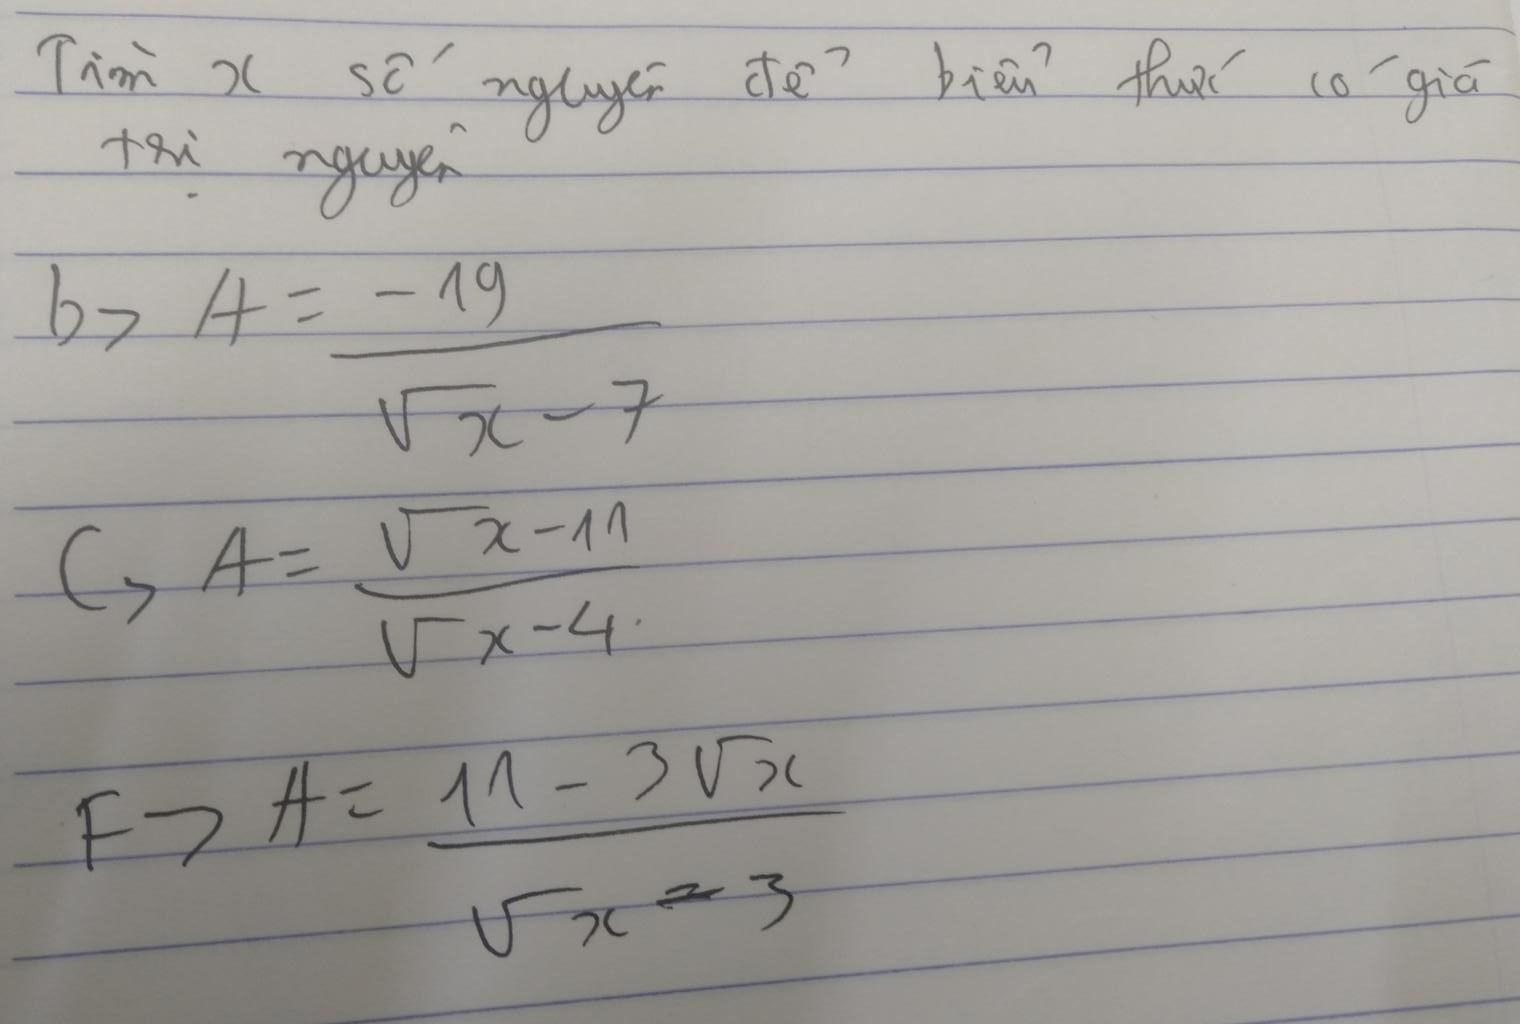 Tìm x số nguyên để biểu thức có giá
trị nguyên
b> A = -19
√x - 7
C, A = √x - 11
√x - 4.
F> A = 11 - 3√x
√x - 3